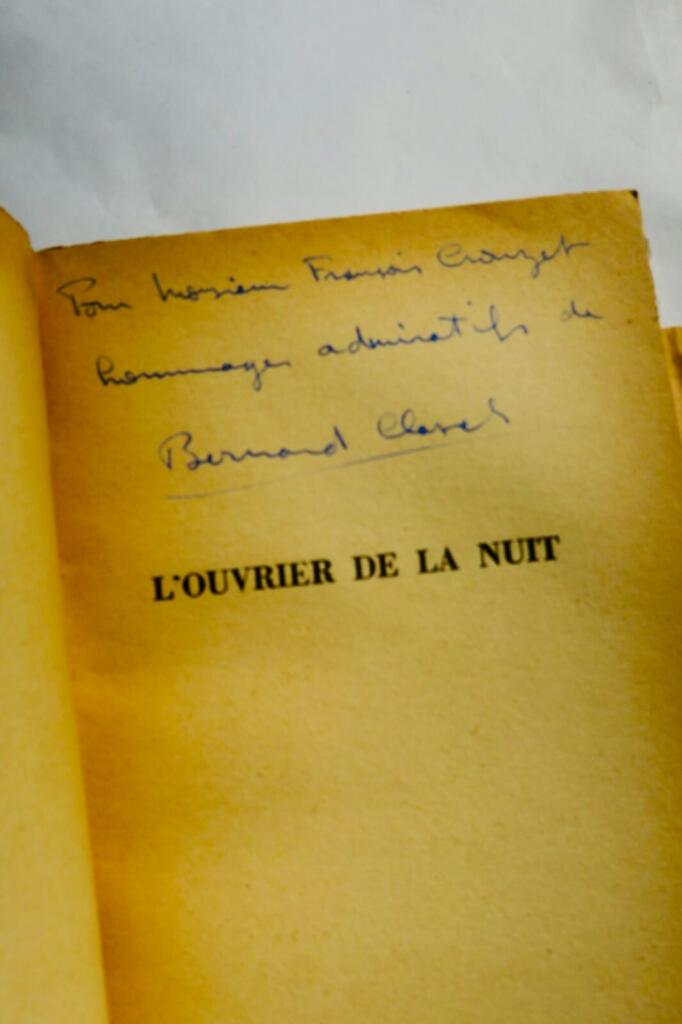 Pour Monsieur François Crouzet
hommages admiratifs de
Bernard Clavel
L'OUVRIER DE LA NUIT